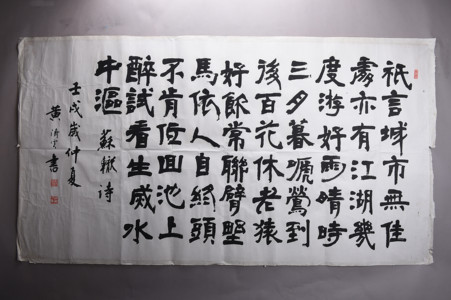 祇言城市無佳
處亦有江湖幾
度游好雨晴時
三月暮嗁鶯到
後百花休老猿
好飲常聯臂埜
馬依人自絡頭
不肯低回池上
醉試看生烕水
中漚
蘇轍詩
壬戌歲仲夏
黃 書